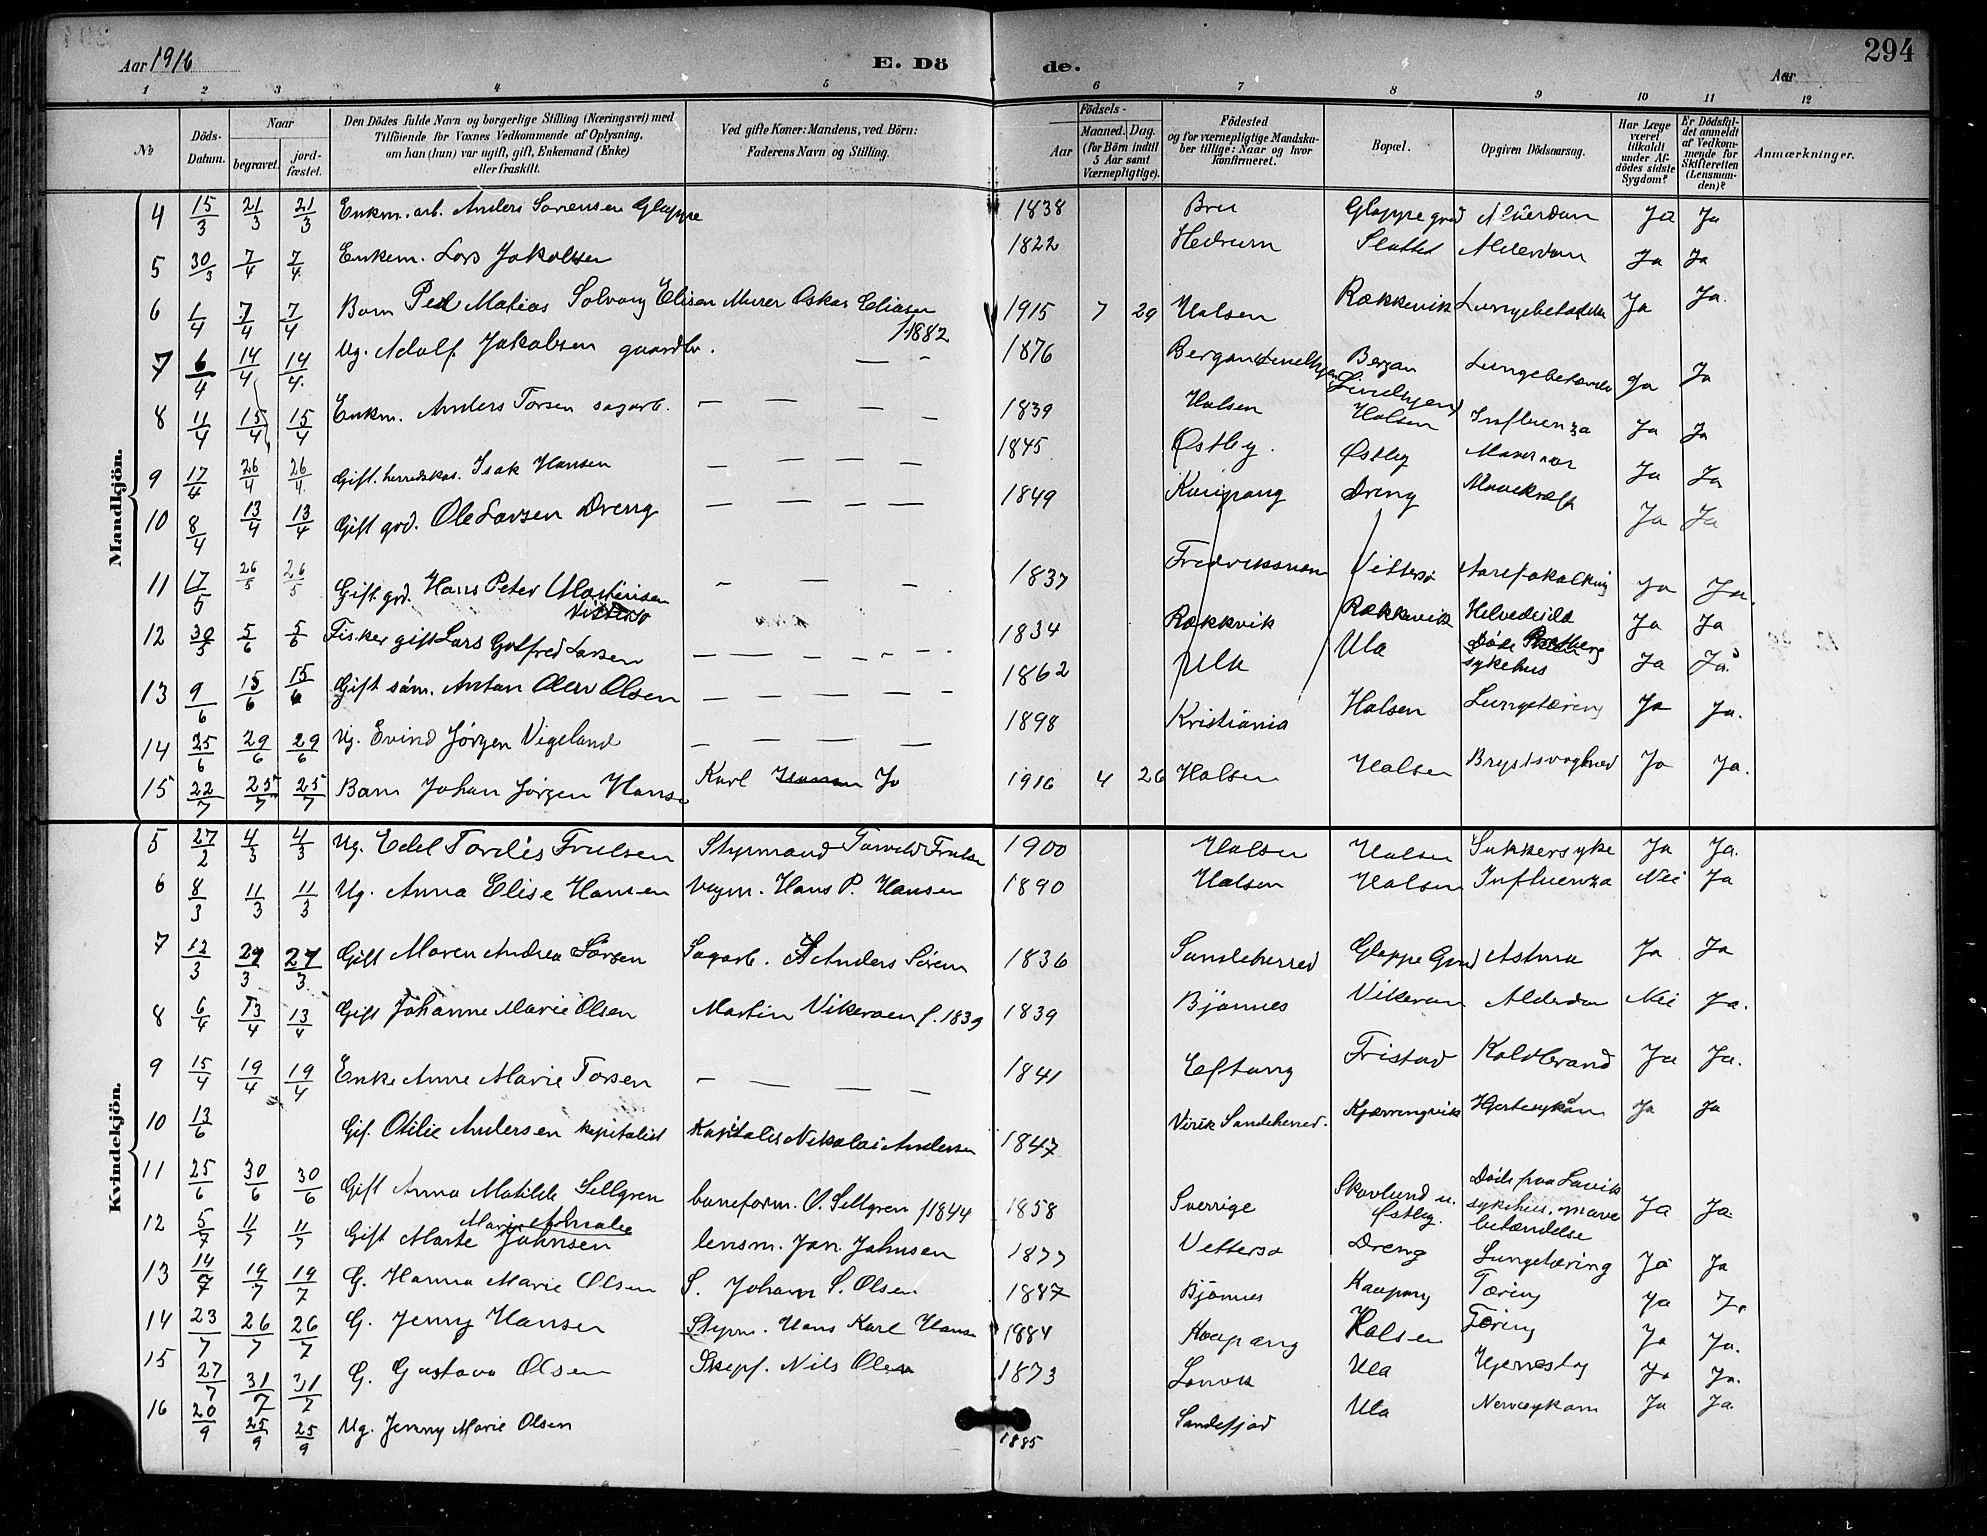 294
Aar 1916
E. Dö de.
Aar
1 2 3 4 5 6 7 8 9 10 11 12
№
Döds-Datum.
Naar
begravet.
jord-fæstet.
Den Dödes fulde Navn og borgerlige Stilling (Næringsvei) med
Tilföiende för Voxnes Vedkommende af Oplysning,
om han (hun) var ugift, gift, Enkemand (Enke)
eller fraskilt.
Ved gifte Koner: Mandens, ved Börn:
Faderens Navn og Stilling.
Födsels-
Aar
Maaned. Dag.
(for Börn indtil
5 Aar samt
Værnepligtige).
Födested
og for værnepligtige Mandska-
ber tillige: Naar og hvor
konfirmeret.
Bopæl.
Opgiven Dödsaarsag.
Har Læge
været
tilkaldt
under Af-
dödes sidste
Sygdom?
Er Dödsfal-
det anmeldt
af Vedkom-
mende for
Skifteretten
(Lensman-
den)?
Anmærkninger.
Mandkjön.
4 15/3 21/3 21/3 Enkm. arb. Anders Sørensen Gloppe 1838 Bru Gloppe grd Alderdom Ja Ja
5 30/3 7/4 7/4 Enkem. Lars Jakobsen 1822 Hedrum Slottet Alderdom Ja Ja
6 1/4 7/4 7/4 Barn Peder Matias Solvang Elisen Murer Oskar Eliasen f. 1882 1915 7 29 Halsen Rekkevik Lungebetændelse Ja Ja.
7 6/4 14/4 14/4. Ug. Adolf Jakobsen gaardbr. — - 1876 Bergan Lindhjem Bergan Lindhjem Lungebetændelse Ja Ja
8 11/4 15/4 15/4 Enkm. Anders Torsen sagarb. — — — — 1839 Halsen Halsen Influenza Ja Ja
9 17/4 26/4 26/4. Gift. herredskas. Isak Hansen — — — — 1845 Østby. Østby Ja Ja
10 8/4 13/4 13/4 Gift grd. Ole Larsen Dreng — — — — 1849 Kaupang Dreng Mavekræft Ja Ja
11 17/5 26/5 26/5 Gift grd. Hans Peter Martinsen Vittersø - — - 1837 Fredriksværn Vittersø Aareforkalkning Ja Ja.
12 30/5 5/6 5/6 Fisker gift Lars Gotfred Larsen — — — - - - - 1834 Rekkvik Rekkevik Helvedeild Ja Ja
13 9/6 15/6 15/6 Gift søm. Anton Olav Olsen — — — — 1862 Ula Ula Døde sykehus Ja Ja
14 25/6 29/6 29/6 Ug. Evind Jørgen Vegeland — — — — 1898 Kristiania Halsen Lungetæring Ja Ja.
15 22/7 25/7 25/7 Barn Johan Jørgen Hansen Karl Hansen Jo 1916 4 26 Halsen Halsen Brystsvaghed Ja Ja.
Kvindekjön.
5 27/2 4/3 4/3 Ug. Edel Tordis Trulsen Styrmand Torvald Trulsen 1900 Halsen Halsen Sukkersyke Ja Ja.
6 8/3 11/3 11/3 Ug. Anna Elise Hansen Vegm. Hans P. Hansen 1890 Halsen Halsen Influenza Nei Ja
7 12/3 27/3 27/3 Gift Maren Andrea Sørsen Sagarb. Anders Sørensen 1836 Sandeherred Gloppe Grd Astma Ja Ja
8 6/4 13/4 13/4 Gift Johanne Marie Olsen Martin Vikeraen f. 1839 1839 Bjønnes Vikeraen Alderdom Nei Ja.
9 15/4 19/4 19/4 Enke Anne Marie Torsen — — — — 1841 Eftang Fristad Koldbrand Ja Ja.
10 13/6 Gif. Otilie Andersen kapitalist Kapitalist Nikolai Andersen 1847 Virik Sandeherred. Kjærringvik Hjertesykdom Ja Ja
11 25/6 30/6 30/6 Gift Anna Matilde Sellgren baneform. O. Sellgren f 1844 1858 Sverrige Skovlund u. Østby. Døde paa Larvik sykehus. mave betændelse Ja Ja.
12 5/7 11/7 11/7 Gift Marte Marie Amalie Johnsen lensm. Jon. Johnsen 1877 Vettersø Dreng Lungetæring Ja Ja
13 14/7 19/7 19/7 G. Hanna Marie Olsen S. Johann S. Olsen 1887 Bjønnes Kaupang Tæring Ja Ja
14 23/7 26/7 26/7 G. Jenny Hansen Styrm. Hans Karl Hansen 1884 Kaupang Halsen Tæring Ja Ja.
15 27/7 31/7 31/7 G. Gustava Olsen Skepf. Nils Olsen 1873 Larvik Ula Hjerneslag Ja Ja.
16 20/9 25/9 25/9 Ug. Jenny Marie Olsen 1885 Sandefjord Ula Nervesykdom Ja Ja.